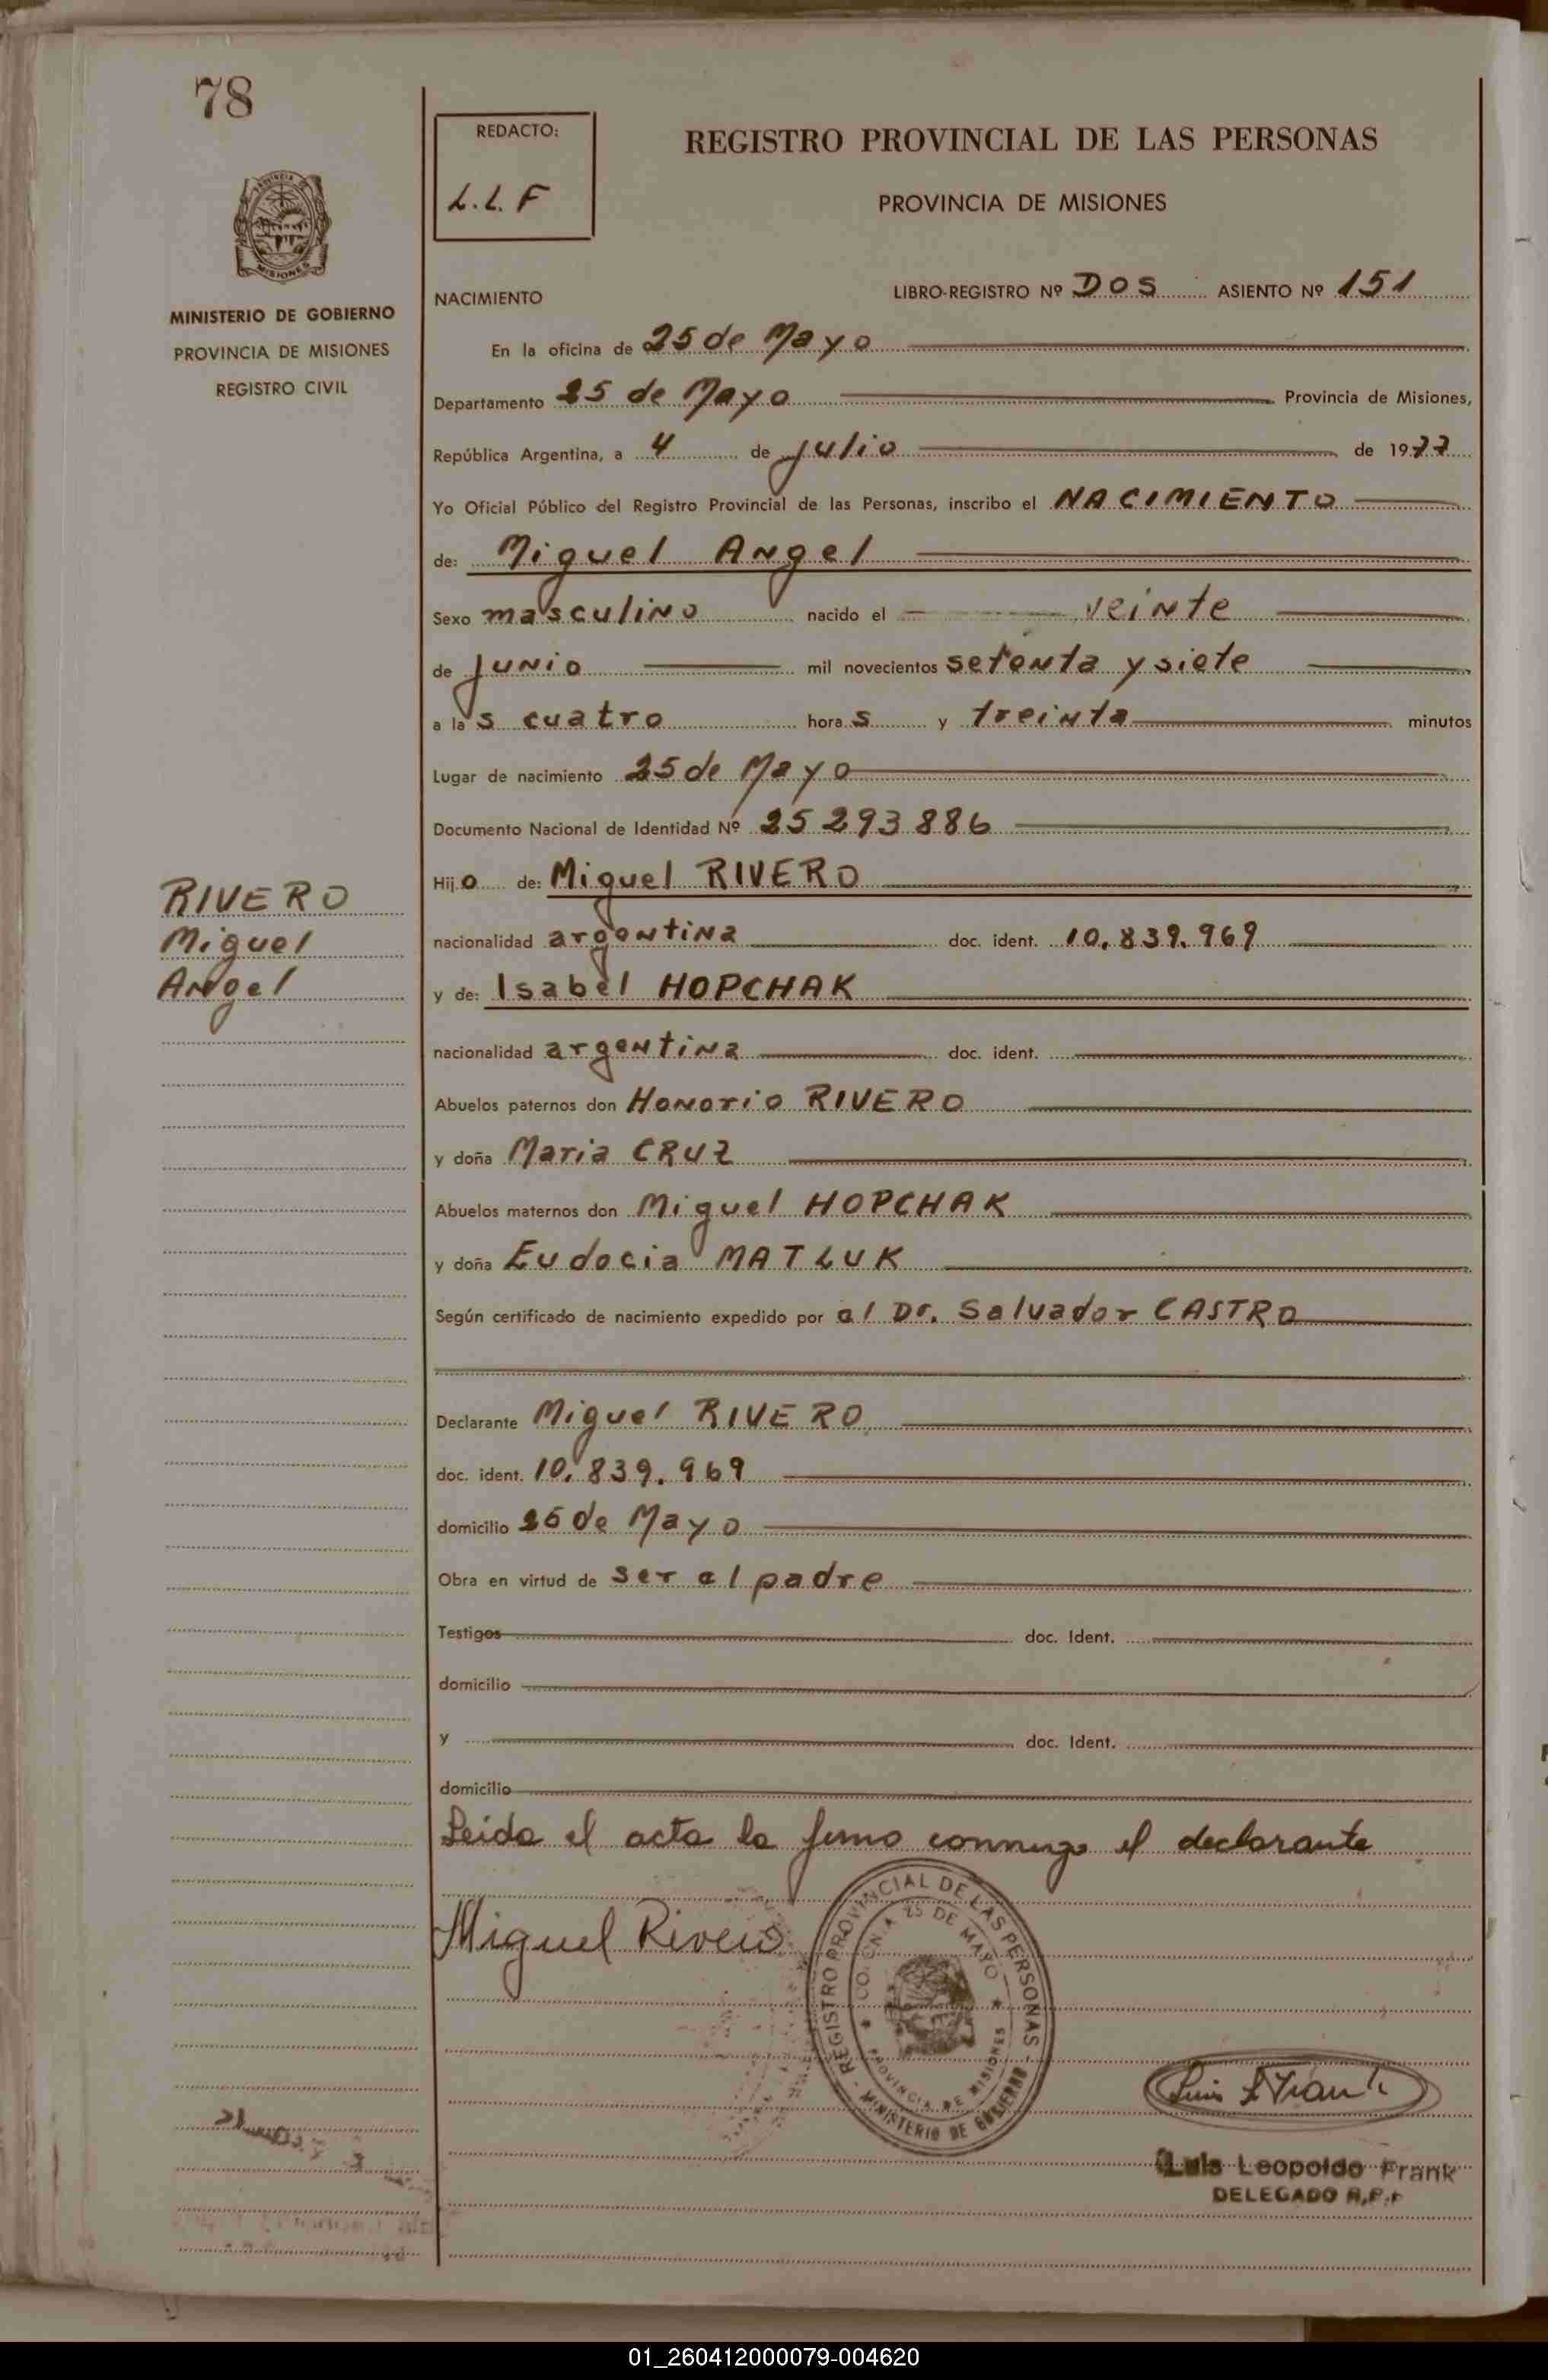 78
REDACTO:
L.L.F
REGISTRO PROVINCIAL DE LAS PERSONAS
PROVINCIA DE MISIONES
MISIONES
MINISTERIO DE GOBIERNO
PROVINCIA DE MISIONES
REGISTRO CIVIL
NACIMIENTO LIBRO-REGISTRO Nº DOS ASIENTO Nº 151
En la oficina de 25 de Mayo
Departamento 25 de Mayo Provincia de Misiones,
República Argentina, a 4 de julio de 1977
Yo Oficial Público del Registro Provincial de las Personas, inscribo el NACIMIENTO
de: Miguel Angel
Sexo masculino nacido el veinte
de junio mil novecientos setenta y siete
a las cuatro horas y treinta minutos
Lugar de nacimiento 25 de Mayo
Documento Nacional de Identidad Nº 25 293 886
Hijo de: Miguel RIVERO
RIVERO
Miguel
Angel
nacionalidad argentina doc. ident. 10.839.969
y de: Isabel HOPCHAK
nacionalidad argentina doc. ident.
Abuelos paternos don Honorio RIVERO
y doña Maria CRUZ
Abuelos maternos don Miguel HOPCHAK
y doña Eudocia MATLUK
Según certificado de nacimiento expedido por el Dr. Salvador CASTRO
Declarante Miguel RIVERO
doc. ident. 10.839.969
domicilio 25 de Mayo
Obra en virtud de ser el padre
Testigos doc. Ident.
domicilio
y doc. Ident.
domicilio
Leida el acta la firma conmigo el declarante
Miguel Rivero
REGISTRO PROVINCIAL DE LAS PERSONAS - MINISTERIO DE GOBIERNO -
COLONIA 25 DE MAYO
PROVINCIA DE MISIONES
Luis L Frank
Luis Leopoldo Frank
DELEGADO R.P.P
01_260412000079-004620